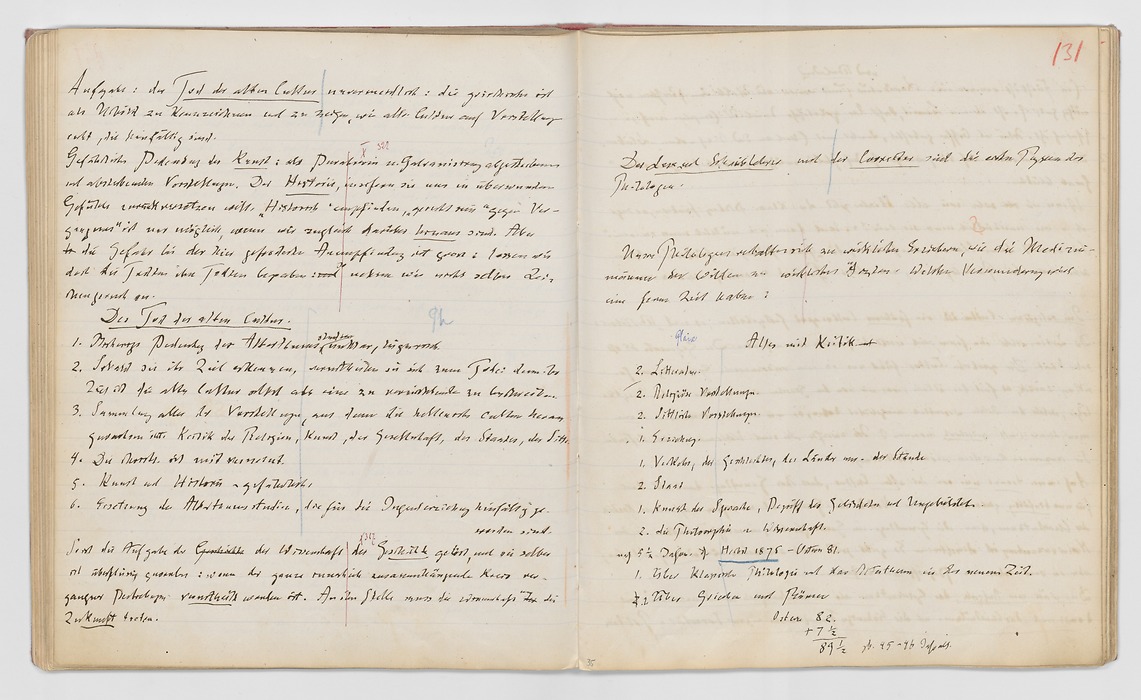 Aufgabe: der Tod der alten Cultur unvermeidlich: die griechische ist
als Urbild zu kennzeichnen und zu zeigen, wie alle Cultur auf Vorstellungen
ruht, die hinfällig sind.
Gefährliche Bedeutung der Kunst: als Bewahrerin u. Galvanisirung abgestorbener
und absterbender Vorstellungen. Der Historie, insofern sie uns in überwundene
Gefühle zurückversetzen will. „Historisch" empfinden, „gerecht sein" gegen Ver-
gangenes ist nur möglich, wenn wir zugleich darüber hinaus sind. Aber
die Gefahr bei der hier geforderten Anempfindung ist gross: lassen wir
doch die Todten ihre Todten begraben: so nehmen wir nicht selber Lei-
chengeruch an.
Der Tod der alten Cultur.
1. Bisherige Bedeutung der Alterthumsstudien, unklar, lügnerisch
2. Sobald sie ihr Ziel erkennen, verurtheilen sie sich zum Tode: denn ihr
Ziel ist die alte Cultur selbst als eine zu vernichtende zu beschreiben.
3. Sammlung aller der Vorstellungen, aus denen die hellenische Cultur heraus
gewachsen ist. Kritik der Religion, Kunst, der Gesellschaft, des Staates, der Sitte
4. Die christl. ist mit verneint.
5. Kunst und Historie – gefährlich.
6. Ersetzung der Alterthumsstudien, die für die Jugenderziehung hinfällig ge-
worden sind.
So ist die Aufgabe der Geschichte der Wissenschaft der Geschichte gelöst, und sie selber
ist überflüssig geworden: wenn der ganze innerlich zusammenhängende Kreis ver-
gangner Bestrebungen verurtheilt worden ist. An ihre Stelle muss die Wissenschaft um die
Zukunft treten.
96
131
Der Lese und Schreiblehrer und der Corrector sind die ersten Typen des
Philologen.
Unsre Philologen verhalten sich zu wirklichen Erziehern, wie die Medizin-
männer der Wilden zu wirklichen Ärzten. Welche Verwunderung wird
eine ferne Zeit haben!
Alles mit Kritik
2. Litteratur.
2. Religiöse Vorstellungen.
2. Sittliche Vorstellungen.
1. Erziehung.
1. Verkehr, der Geschlechter, der Länder usw. der Stände
2. Staat
1. Kunst der Sprache, Begriff des Gebildeten und Ungebildeten.
2. die Philosophie u. Wissenschaft.
Herbst 1875 – Ostern 81.
1. Über klassische Philologie und das Alterthum in der neueren Zeit.
2. Über Griechen und Römer
Ostern 82.
+ 7 ½
89 ½
45–46